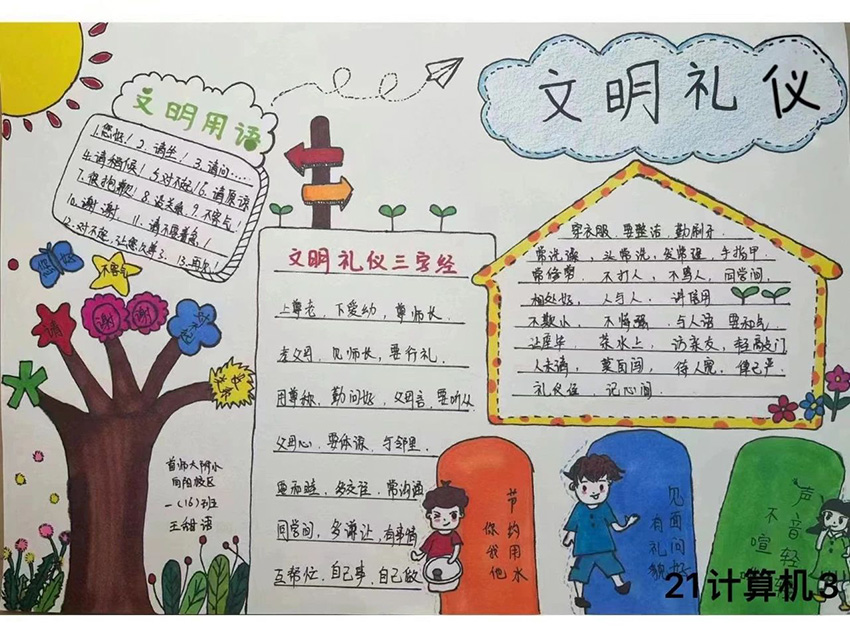 文明礼仪
文明用语
1.您好！2.请坐！3.请问……
4.请稍候！5.对不起！6.请原谅
7.很抱歉！8.没关系 9.不客气！
10.谢谢 11.请不要着急！
12.对不起，让您久等了.13.再见！
您好
不客气
请
谢谢
对不起
文明礼仪三字经
上尊老，下爱幼，尊师长.
孝父母，见师长，要行礼.
用尊称，勤问好，父母言，要听从
父母心，要体谅，与邻里.
要和睦，多交往，常沟通
同学间，多谦让，有事情
互帮忙，自己事，自己做
穿衣服，要整洁，勤刷牙.
常洗澡，头常洗，发常理，手指甲.
常修剪.不打人，不骂人，同学间，
相处好，人与人，讲信用
不欺小，不怕强.与人语 要和气.
让座毕 茶水上，访亲友，轻敲门
礼仪佳，记心间
首师大附小
向阳校区
一（16）班
王甜语
节约用水
你我他
见面问好
有礼貌
声音轻
不喧
21计算机3